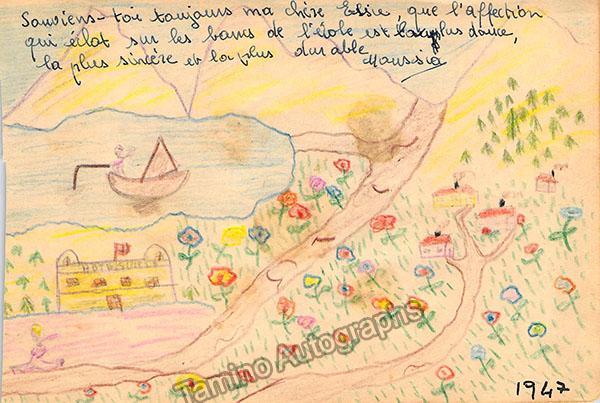 Souviens-toi toujours ma chère Essie que l'affection
qui éclot sur les bancs de l'école est la plus douce,
la plus sincère et la plus durable
Moussia
HOTEL SUISSE
Tamino Autographs
1947